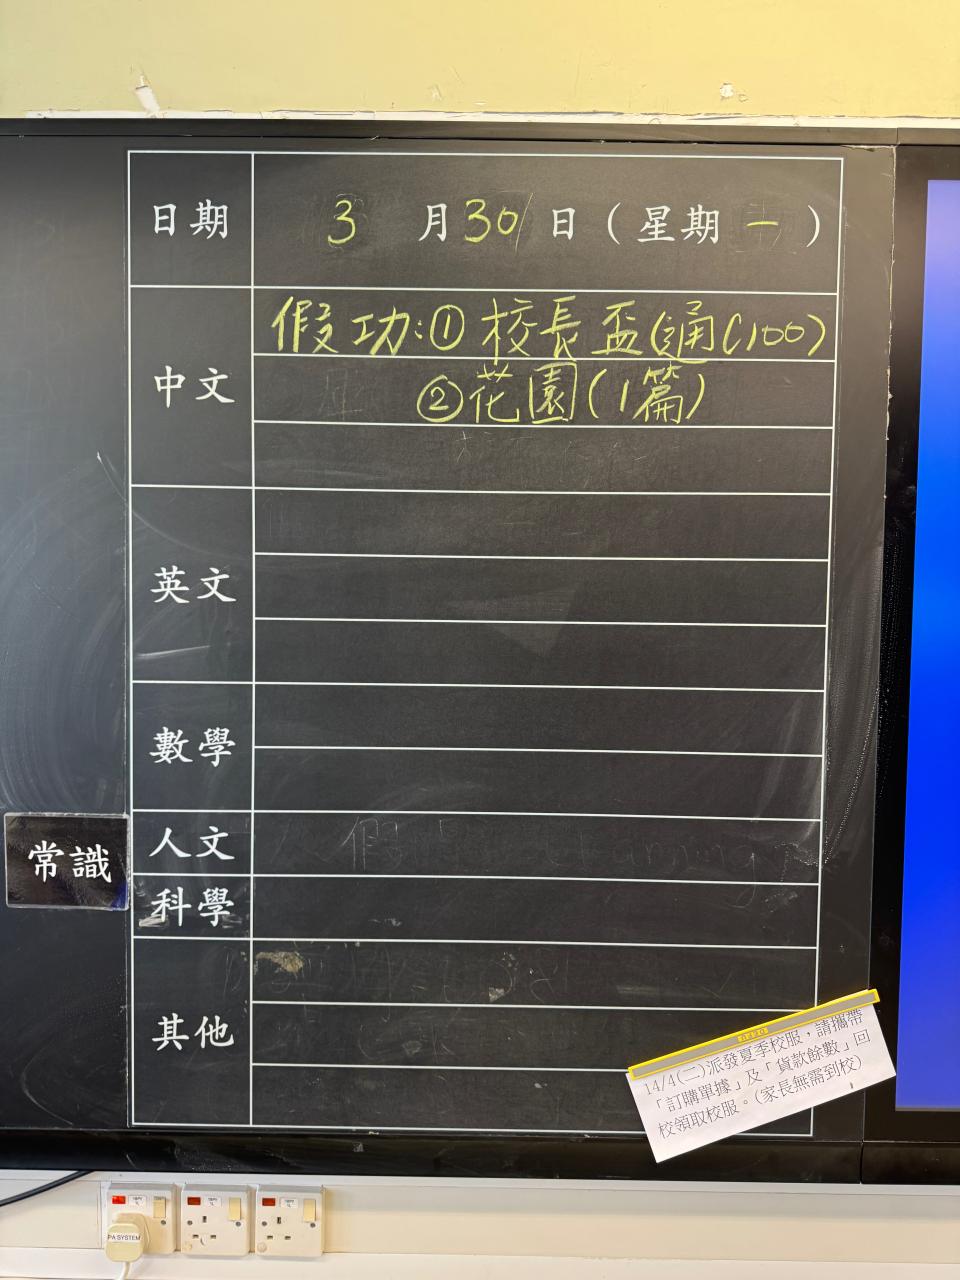 日期 3 月 30 日 ( 星期 一 )
中文 假功:① 校長盃(通(100)
②花園(1篇)
英文
數學
常識 人文
科學
其他
14/4(二)派發夏季校服，請攜帶
「訂購單據」及「貨款餘數」回
校領取校服。(家長無需到校)
PA SYSTEM